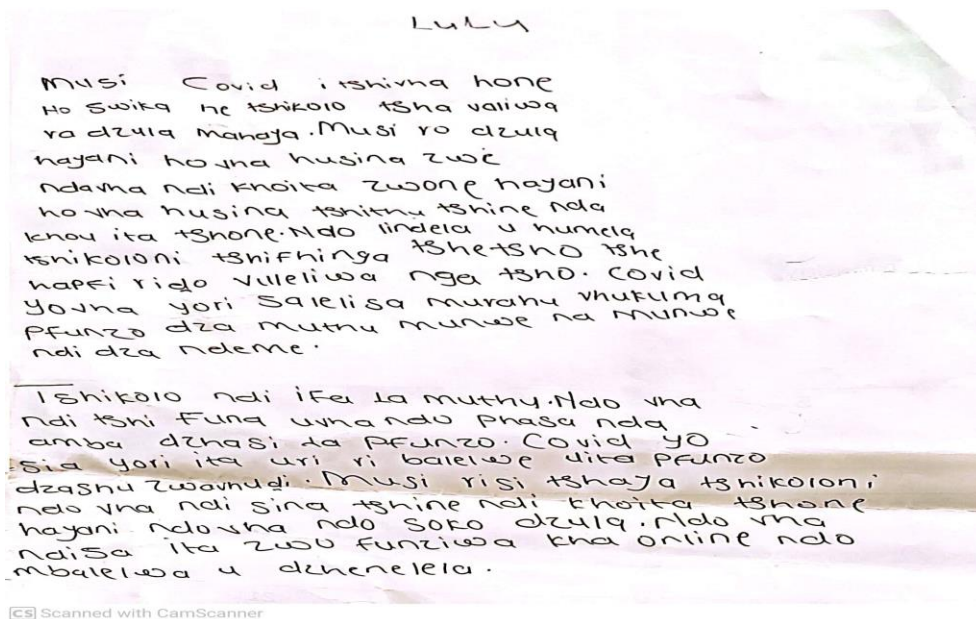 LULY
Musi Covid i tshivha hone
Ho swika he tshikolo tsha valiwa
ra dzula mahaya. Musi ro dzula
hayani ho vha husina zwe
ndavha ndi khoita zwone hayani
ho vha husina tshithu tshine nda
khou ita tshone. Ndo lindela u humela
tshikoloni tshifhinga tshetsho tshe
hapfi rido vuleliwa nga tsho. Covid
yovha yori salelisa murahu vhukuma
Pfunzo dza muthu munwe na munwe
ndi dza ndeme.
Tshikolo ndi ifa la muthu. Ndo vha
ndi tshi funa uvha ndo phasa nda
amba dzhasi la pfunzo. Covid yo
sia yori ita uri ri balelwe uita pfunzo
dzashu zwavhudi. Musi risi tshaya tshikoloni
ndo vha ndi sina tshine ndi khoita tshone
hayani ndo vha ndo soko dzula. Ndo vha
ndisa ita zwu funziwa kha online ndo
mbalelwa u dzhenelela.
CS Scanned with CamScanner